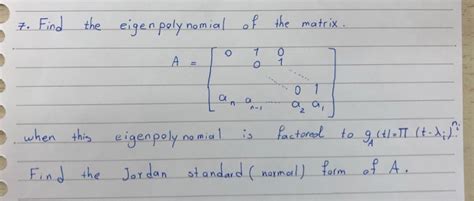 7. Find the eigenpolynomial of the matrix.
A = [ 0 1 0
0 1
0 1
aₙ aₙ₋₁ a₂ a₁ ]
when this eigenpolynomial is factored to g_A(t)=Π (t-λᵢ)^nᵢ
Find the Jordan standard (normal) form of A.